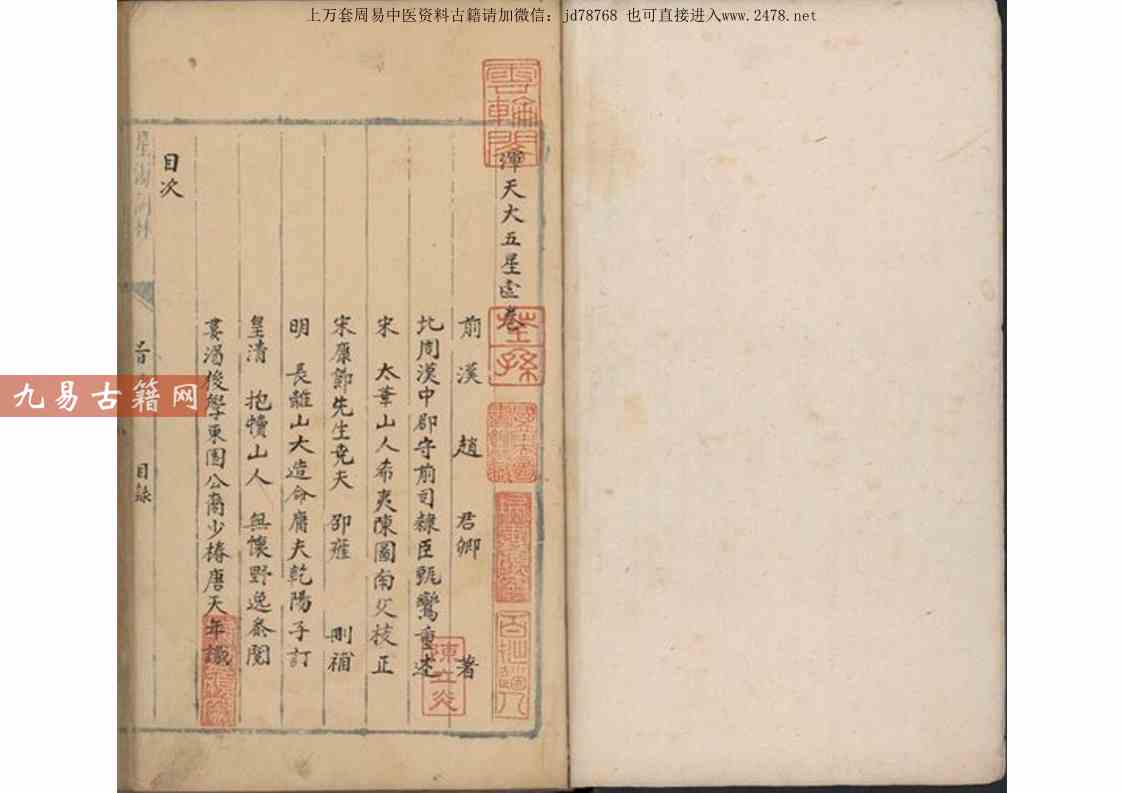 上万套周易中医资料古籍请加微信：jd78768 也可直接进入www.2478.net
渾天大五星壹卷
前漢 趙君卿 著
北周漢中郡守前司隸臣甄鸞重述
宋 太華山人希夷陳圖南父校正
宋康節先生堯夫 邵雍 刪補
明 長離山大造命膺夫乾陽子訂
皇清 抱犢山人 無懷野逸叅閱
後學東園公裔少椿唐天年識
目次
目錄
陳立炎
九易古籍网